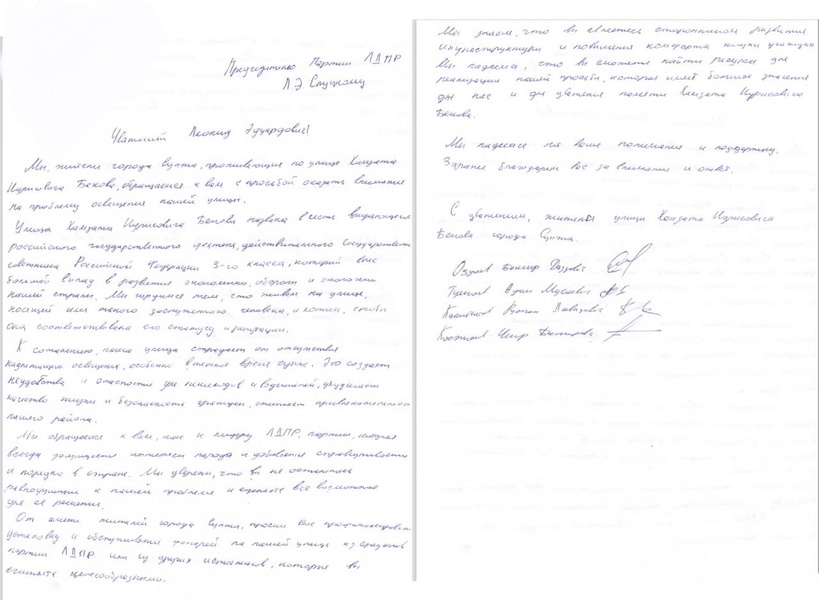 Председателю Партии ЛДПР
Л.Э. Слуцкому
Уважаемый Леонид Эдуардович!
Мы, жители города Сунжа, проживающие по улице Хамзата
Идрисовича Бекова, обращаемся к вам с просьбой оказать внимание
на проблему освещения нашей улицы.
Улица Хамзата Идрисовича Бекова названа в честь выдающегося
российского государственного деятеля, действительного Государственного
советника Российской Федерации 3-го класса, который внес
большой вклад в развитие экономики, обороны и экологии
нашей страны. Мы гордимся тем, что живем на улице,
носящей имя такого заслуженного человека, и хотим, чтобы
она соответствовала его статусу и репутации.
К сожалению, наша улица страдает от отсутствия
надлежащего освещения, особенно в темное время суток. Это создает
неудобства и опасности для пешеходов и водителей, ухудшает
качество жизни и безопасность граждан, снижает привлекательность
нашего района.
Мы обращаемся к вам, как к лидеру ЛДПР, партии, которая
всегда защищает интересы народа и добивается справедливости
и порядка в стране. Мы уверены, что вы не останетесь
равнодушным к нашей проблеме и сделаете все возможное
для ее решения.
От имени жителей города Сунжа, просим Вас профинансировать
установку и обслуживание фонарей на нашей улице из средств
партии ЛДПР или из других источников, которые вы
считаете целесообразными.
Мы знаем, что вы являетесь сторонником развития
инфраструктуры и повышения комфорта жизни граждан
Мы надеемся, что вы сможете найти ресурсы для
реализации нашей просьбы, которая имеет большое значение
для нас и для памяти Хамзата Идрисовича
Бекова.
Мы надеемся на ваше понимание и поддержку.
Заранее благодарим вас за внимание и ответ.
С уважением, жители улицы Хамзата Идрисовича
Бекова города Сунжа.
Оздоев
Адам Мусаевич